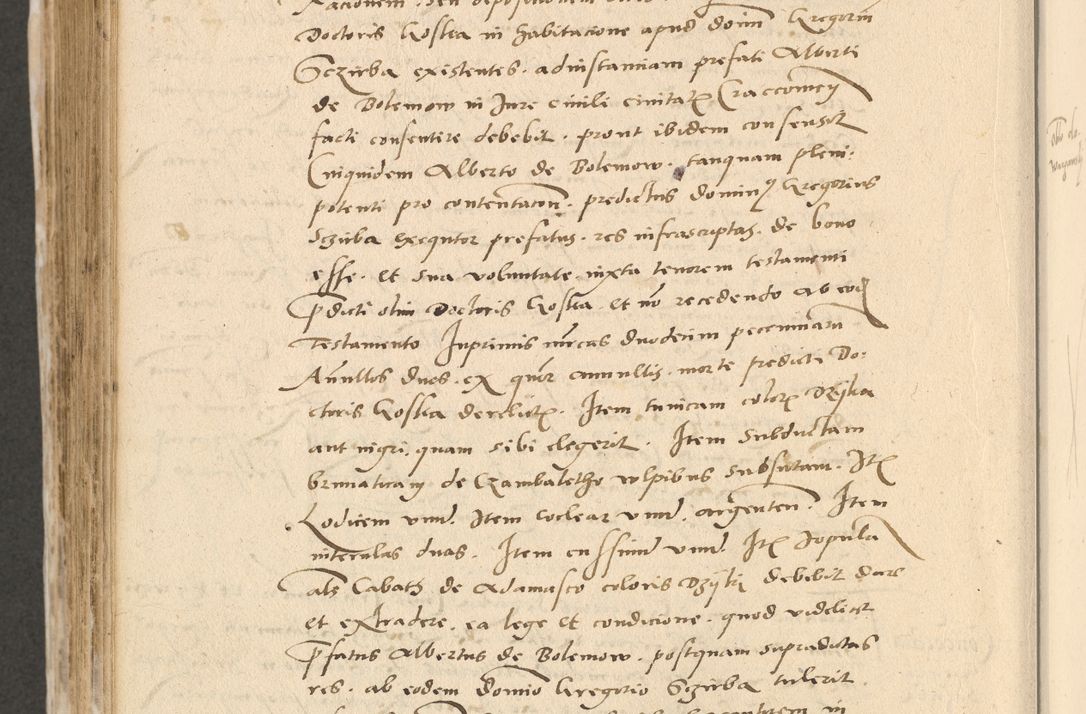 Doctoris Kostka in habitacione apud domi Gregorii
Sczirba existentes. ad instanciam prefati Alberti
de Bolemow in Jure ciuili ciuitatis Craccouiey
facti consentire debebit. prout ibidem consensit
Cuiquidem Alberto de Bolemow. tanquam pleni:
potenti pro contentacon. predictus dominus Gregorius
Sczirba exequtor prefatus. res infrascriptas. de bono
esse. et sua voluntate. iuxta tenorem testamenti
pdicti olim Doctoris Kostka. et no recedendo ab eod
Testamento Inprimis mrcas duodecim pecuniaru
Anullos duos. ex quor anullis. morte predicti Do:
ctoris Kostka derelict. Item tunicam color Dzyka
aut nigri. quam sibi elegerit. Item subductam
brunaticam de Czambaletho vulpibus subsutam. Ite
Lodicem vnu. Item coclear vnu. argenteu. Item
interulas duas. Item cussinu vnu. Ite Jopula
als Cabath de Adamasco coloris Dzyki debebit dare
et extradere. ea lege et condicione. quod videlicet
pfatus Albertus de Bolemow. postquam supradictas
res. ab eodem domino Gregorio Sczirba tulerit.